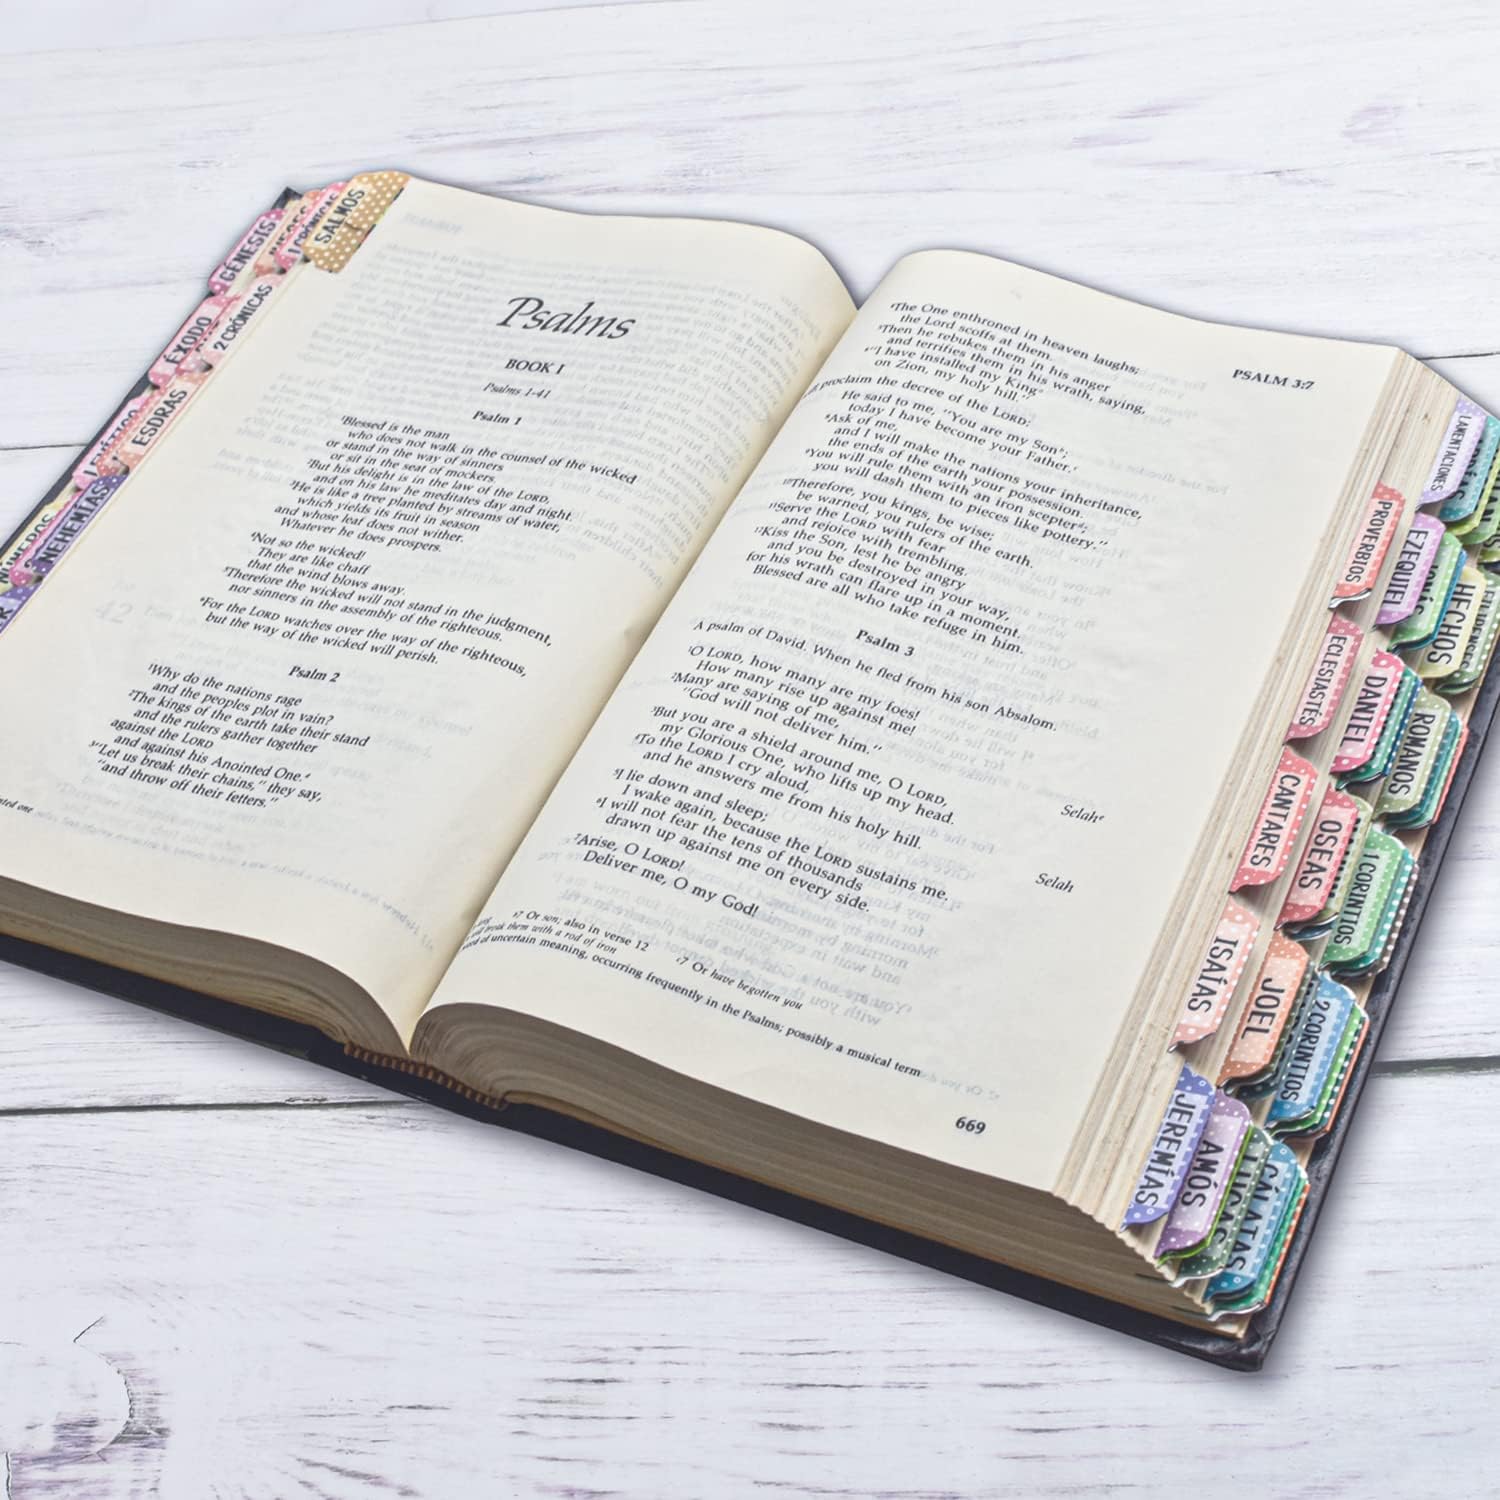 SALMOS
GÉNESIS
1 CRÓNICAS
2 CRÓNICAS
ÉXODO
ESDRAS
NEHEMÍAS
Psalms
BOOK I
Psalms 1-41
Psalm 1
¹Blessed is the man
who does not walk in the counsel of the wicked
or stand in the way of sinners
or sit in the seat of mockers.
²But his delight is in the law of the LORD,
and on his law he meditates day and night.
³He is like a tree planted by streams of water,
which yields its fruit in season
and whose leaf does not wither.
Whatever he does prospers.
⁴Not so the wicked!
They are like chaff
that the wind blows away.
⁵Therefore the wicked will not stand in the judgment,
nor sinners in the assembly of the righteous.
⁶For the LORD watches over the way of the righteous,
but the way of the wicked will perish.
Psalm 2
¹Why do the nations rage
and the peoples plot in vain?
²The kings of the earth take their stand
and the rulers gather together
against the LORD
and against his Anointed One.
³"Let us break their chains," they say,
"and throw off their fetters."
PSALM 3:7
⁴The One enthroned in heaven laughs;
the Lord scoffs at them.
⁵Then he rebukes them in his anger
and terrifies them in his wrath, saying,
⁶"I have installed my King
on Zion, my holy hill."
proclaim the decree of the LORD:
He said to me, "You are my Son;
today I have become your Father.
⁸Ask of me,
and I will make the nations your inheritance,
the ends of the earth your possession.
⁹You will rule them with an iron scepter;
you will dash them to pieces like pottery."
¹⁰Therefore, you kings, be wise;
be warned, you rulers of the earth.
¹¹Serve the LORD with fear
and rejoice with trembling.
¹²Kiss the Son, lest he be angry
and you be destroyed in your way,
for his wrath can flare up in a moment.
Blessed are all who take refuge in him.
Psalm 3
A psalm of David. When he fled from his son Absalom.
¹O LORD, how many are my foes!
How many rise up against me!
²Many are saying of me,
"God will not deliver him." Selah
³But you are a shield around me, O LORD,
my Glorious One, who lifts up my head.
⁴To the LORD I cry aloud,
and he answers me from his holy hill. Selah
⁵I lie down and sleep;
I wake again, because the LORD sustains me.
⁶I will not fear the tens of thousands
drawn up against me on every side.
⁷Arise, O LORD!
Deliver me, O my God!
7 Or son; also in verse 12
7 Or have begotten you
will break them with a rod of iron
word of uncertain meaning, occurring frequently in the Psalms; possibly a musical term
669
LAMENTACIONES
PROVERBIOS
EZEQUIEL
HECHOS
ECLESIASTÉS
DANIEL
ROMANOS
CANTARES
OSEAS
1 CORINTIOS
ISAÍAS
JOEL
2 CORINTIOS
JEREMÍAS
AMÓS
LUCAS
GÁLATAS